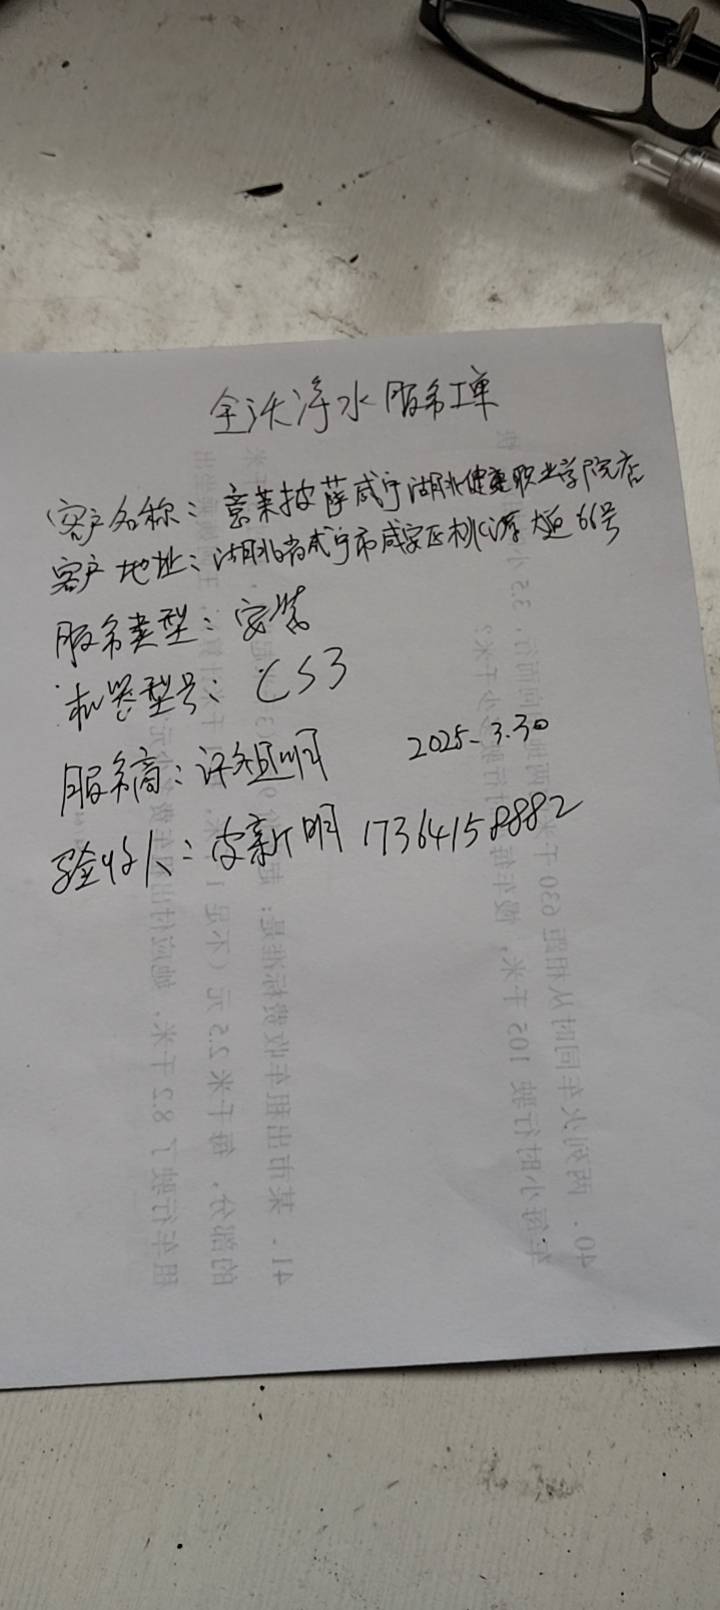 全沃净水服务工单
客户名称：意莱披萨咸宁湖北健康职业学院店
客户地址：湖北省咸宁市咸安区桃源大道66号
服务类型：安装
机器型号：CS3
服务商：许祖明 2025-3.30
验收人：皮新明 17364158882